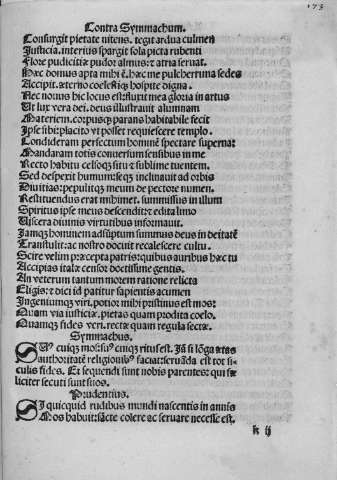 173
Contra Symmachum.
Consurgit pietate nitens. tegit ardua culmen
Iusticia. interius spargit sola picta rubenti
Flore pudicitiæ pudor almus: & atria seruat.
Hæc domus apta mihi ē. hæc me pulcherrima sedes
Accipit. æterno cœlestiq; hospite digna.
Nec nouus hic locus est: fluxit mea gloria in artus
Et lux vera dei. deus illustrauit alumnam
Materiem. corpusq; parans habitabile fecit
Ipse sibi: placito vt posset requiescere templo.
Condideram perfectum hominē spectare superna:
Mandaram totis conuersum sensibus in me
Recto habitu celsoq; situ & sublime tuentem.
Sed despexit humum: seq; inclinauit ad orbis
Diuitias: pepulitq; meum de pectore numen.
Restituendus erat mihimet. summissus in illum
Spiritus ipse meus descendit: & edita limo
Uiscera diuinis virtutibus informauit.
Iamq; hominem adsūptum summus deus in deitatē
Transtulit: ac nostro docuit recalescere cultu.
Scire velim præcepta patris: quibus auribus hæc tu
Accipias italæ censor doctissime gentis.
An veterum tantum morem ratione relicta
Eligis: & dici id patitur sapientis acumen
Ingeniumq; viri. potior mihi pristinus est mos:
Quam via iusticiæ. pietas quam prodita coelo.
Quamq; fides veri. rectæ quam regula sectæ.
Symmachus.
SUꝰ cuiq; mos: suꝰ cuiq; ritus est. Iā si lōga ætas
authoritatē religionibꝰ faciat: seruāda est tot sę-
culis fides. Et sequendi sunt nobis parentes: qui fæ
liciter secuti sunt suos.
Prudentius.
SI quicquid rudibus mundi nascentis in annis
Mos habuit: sācte colere ac seruare necesse est.
k ij